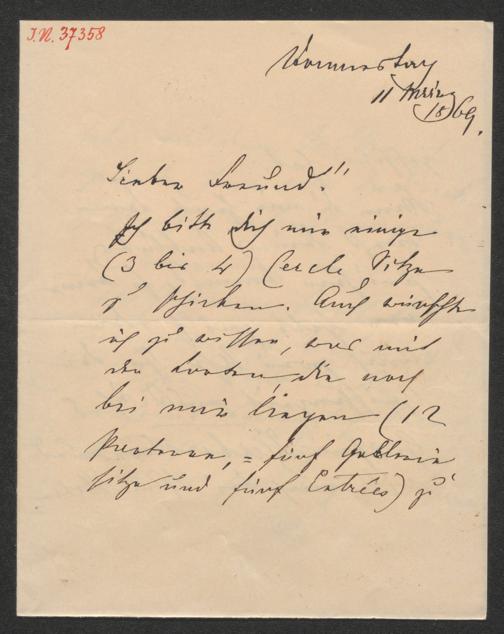 I.N. 37358
Donnerstag
11 März
1869.
Lieber Freund!
Ich bitte dich mir einige
(3 bis 4) Cercle Sitze
zu schicken. Auch wünschte
ich zu wissen, was mit
den Karten, die noch
bei mir liegen (12
Parterre, = fünf Gallerie
sitze und fünf Entrées) zu